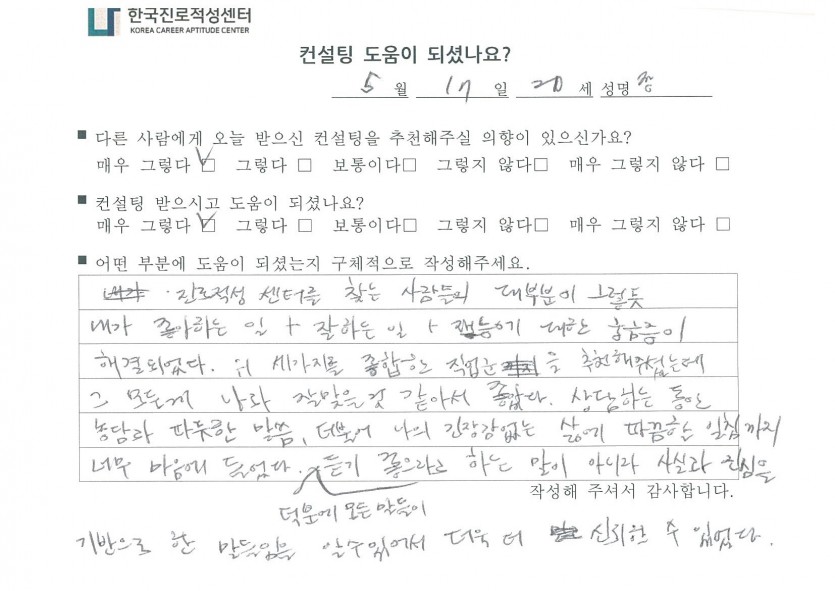 한국진로적성센터
KOREA CAREER APTITUDE CENTER
컨설팅 도움이 되셨나요?
5 월 17 일 20 세 성명 종
■ 다른 사람에게 오늘 받으신 컨설팅을 추천해주실 의향이 있으신가요?
매우 그렇다 ☑ 그렇다 □ 보통이다□ 그렇지 않다□ 매우 그렇지 않다 □
■ 컨설팅 받으시고 도움이 되셨나요?
매우 그렇다 ☑ 그렇다 □ 보통이다□ 그렇지 않다□ 매우 그렇지 않다 □
■ 어떤 부분에 도움이 되셨는지 구체적으로 작성해주세요.
진로적성 센터를 찾는 사람들의 대부분이 그럴듯
내가 좋아하는 일 + 잘하는 일 + 재능에 대한 궁금증이
해결되었다. 위 세가지를 종합하는 직업군을 추천해주셨는데
그 모든게 나와 잘맞을것 같아서 좋았다. 상담하는 동안
농담과 따듯한 말씀, 더불어 나의 긴장감없는 삶에 따끔한 일침까지
너무 마음에 들었다. 듣기 좋으라고 하는 말이 아니라 사실과 진심을
작성해 주셔서 감사합니다.
덕분에 모든 말들이
기반으로 한 말들임을 알수있어서 더욱 더 신뢰할 수 있었다.